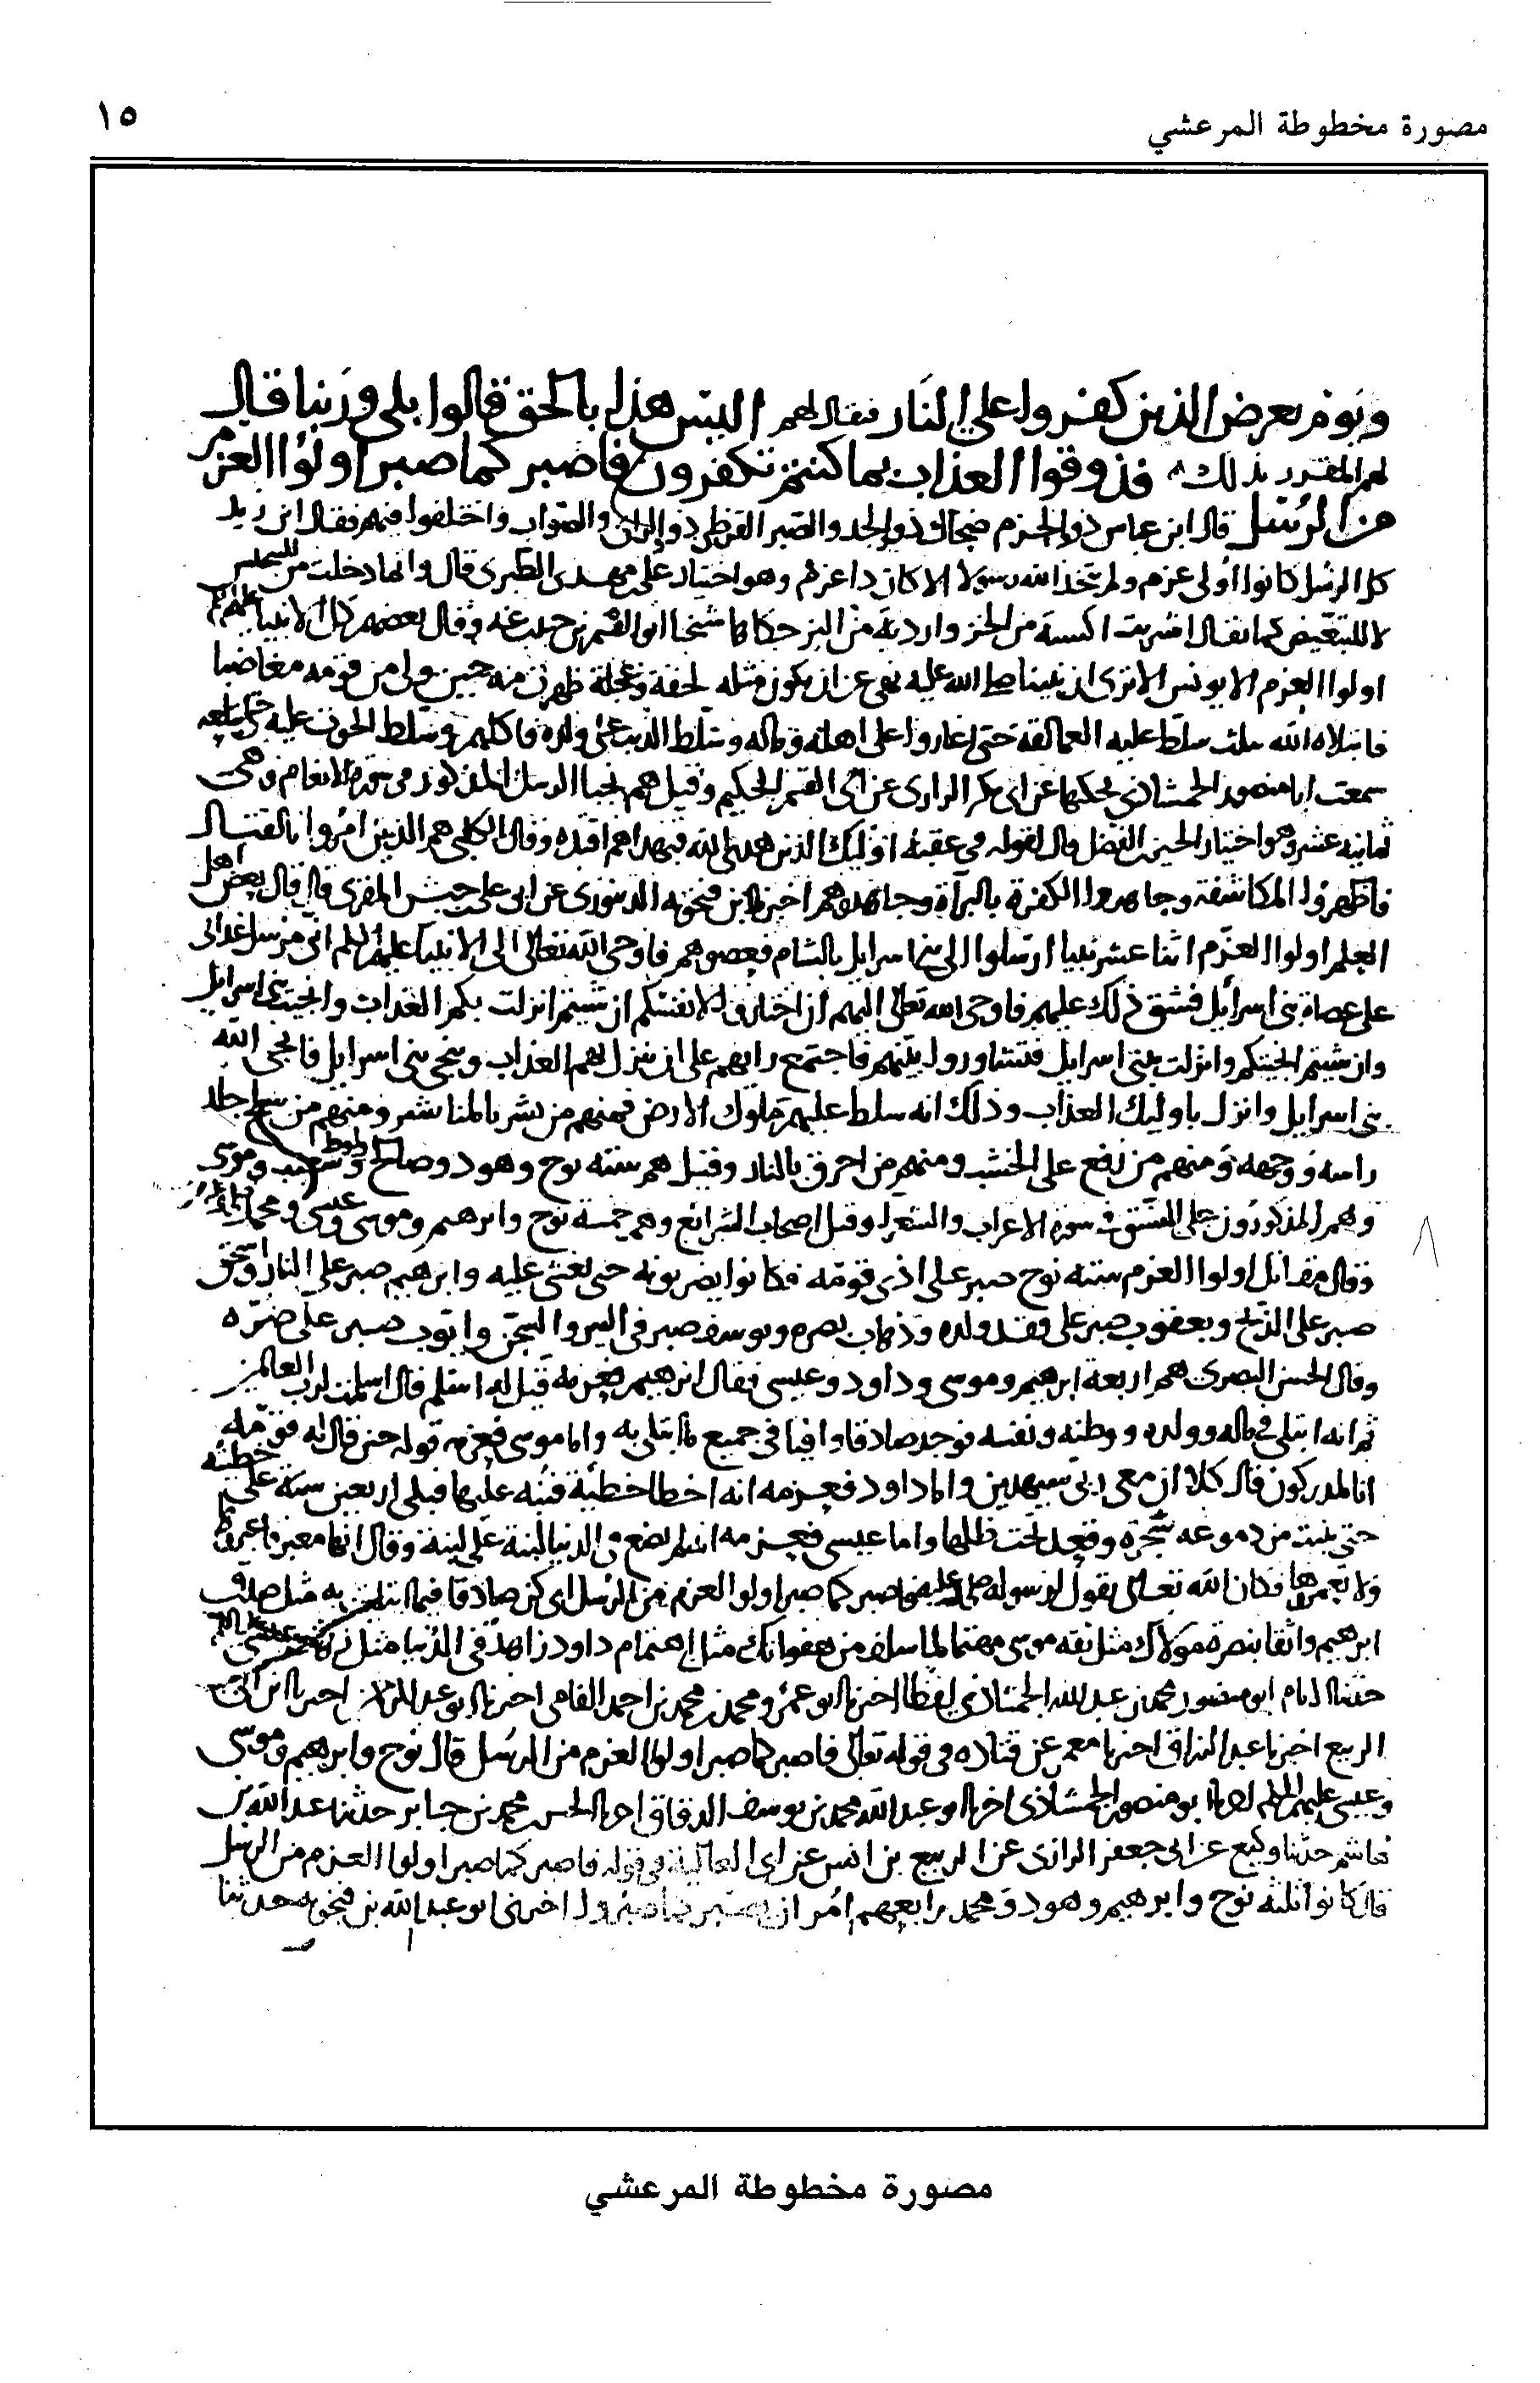 مصورة مخطوطة المرعشي
١٥
ويوم يعرض الذين كفروا على النار فيقال لهم اليس هذا بالحق قالوا بلى وربنا قال
لهم المقرر بذلك فذوقوا العذاب بما كنتم تكفرون فاصبر كما صبر اولوا العزم
من الرسل قال ابن عباس ذو الحزم ضحاك ذو الجد والصبر القرظي ذو الراي والصواب واختلفوا فيهم فقال ابن زيد
كل الرسل كانوا اولى عزم ولم يتخذ الله رسولا الا كان ذا عزم وهو اختيار على بن مهدى الطبرى قال وانما دخلت من للتجنيس
لا للتبعيض كما يقال اشتريت اكسية من الخز واردية من البز حكاها شيخنا ابو القسم بن حبيب عنه وقال بعضهم كل الانبيا عليهم السلم
اولوا العزم الا يونس الا ترى ان نبينا صلى الله عليه نهى عن ان يكون مثله لخفة وعجلة ظهرت منه حين ولى من قومه مغاضبا
فابتلاه الله بثلث سلط عليه العمالقة حتى اغاروا على اهله وماله وسلط الذيب على ولده فاكلهم وسلط الحوت عليه حتى ابتلعه
سمعت ابا منصور الحمشاذي يحكيها عن ابى بكر الرازى عن ابى القسم الحكيم وقيل هم نجبا الرسل المذكورون في سورة الانعام وهى
ثمانية عشر وهو اختيار الحسين بن الفضل قال لقوله في عقبه اوليك الذين هدى الله فبهداهم اقتده وقال الكلبي هم الذين امروا بالقتال
فاظهروا المكاشفة وجاهروا الكفرة بالبراة وجاهدوهم اخبرنا ابن فنجويه الدينورى عن ابى على حبش المقرى قال قال بعض اهل
العلم اولوا العزم اثنا عشر نبيا ارسلوا الى بنى اسرايل بالشام فعصوهم فاوحى الله تعالى الى الانبيا عليهم السلم انى مرسل عذابى
على عصاة بنى اسرايل فشق ذلك عليهم فاوحى الله تعالى اليهم ان اختاروا لانفسكم ان شيتم انزلت بكم العذاب وانجيت بنى اسرايل
وان شيتم انجيتكم وانزلت ببنى اسرايل فتشاوروا بينهم فاجتمع رايهم على ان ينزل بهم العذاب وينجى بنى اسرايل فانجى الله
بنى اسرايل وانزل باوليك العذاب وذلك انه سلط عليهم ملوك الارض فمنهم من نشر بالمناشير ومنهم من سلخ جلد
راسه ووجهه ومنهم من رفع على الخشب ومنهم من احرق بالنار وقيل هم ستة نوح وهود وصالح ولوط وشعيب وموسى
وهم المذكورون على النسق في سورة الاعراف والشعرا وقيل اصحاب الشرائع وهم خمسة نوح وابرهيم وموسى وعيسى ومحمد
وقال مقاتل اولوا العزم ستة نوح صبر على اذى قومه فكانوا يضربونه حتى يغشى عليه وابرهيم صبر على النار واسحق
صبر على الذبح ويعقوب صبر على فقد ولده وذهاب بصره ويوسف صبر في البير والسجن وايوب صبر على ضره
وقال الحسن البصرى هم اربعة ابرهيم وموسى وداود وعيسى فقال ابرهيم فعزمه قيل له اسلم قال اسلمت لرب العالمين
ثم انه ابتلى في ماله وولده ووطنه ونفسه فوجد صادقا وافيا في جميع ما ابتلى به واما موسى فعزمه قوله حين قال له قومه
انا لمدركون قال كلا ان معى ربى سيهدين واما داود فعزمه انه اخطا خطية فنبه عليها فبكى اربعين سنة على خطيته
حتى نبتت من دموعه شجرة وقعد تحت ظلها واما عيسى فعزمه انه لم يضع في الدنيا لبنة على لبنة وقال انها معبر فاعبروها
ولا تعمروها فكان الله تعالى يقول لرسوله صلى الله عليه فاصبر كما صبر اولوا العزم من الرسل اى كن صادقا فيما ابتليت به مثل صدق
ابرهيم واثقا بنصرة مولاك مثل ثقه موسى مهتما لما سلف من هفواتك مثل اهتمام داود زاهدا في الدنيا مثل زهد عيسى عليه السلم
حدثنا الامام ابو منصور محمد بن عبد الله الحمشاذي لفظا اخبرنا ابو عمرو محمد بن محمد بن احمد القاضي اخبرنا ابو عبد الرحمن اخبرنا ابن ابى
الربيع اخبرنا عبد الرزاق اخبرنا معمر عن قتاده في قوله تعالى فاصبر كما صبر اولوا العزم من الرسل قال نوح وابرهيم وموسى
وعيسى عليهم السلم اخبرنا ابو منصور الحمشاذي اخبرنا ابو عبد الله محمد بن يوسف الدقاق اخبرنا الحسن بن محمد بن جابر حدثنا عبد الله بن
هاشم حدثنا وكيع عن ابى جعفر الرازى عن الربيع بن انس عن ابى العالية في قوله فاصبر كما صبر اولوا العزم من الرسل
قال كانوا ثلثة نوح وابرهيم وهود ومحمد رابعهم امر ان يصبر كما صبروا اخبرنى ابو عبد الله بن فنجويه حدثنا
مصورة مخطوطة المرعشي